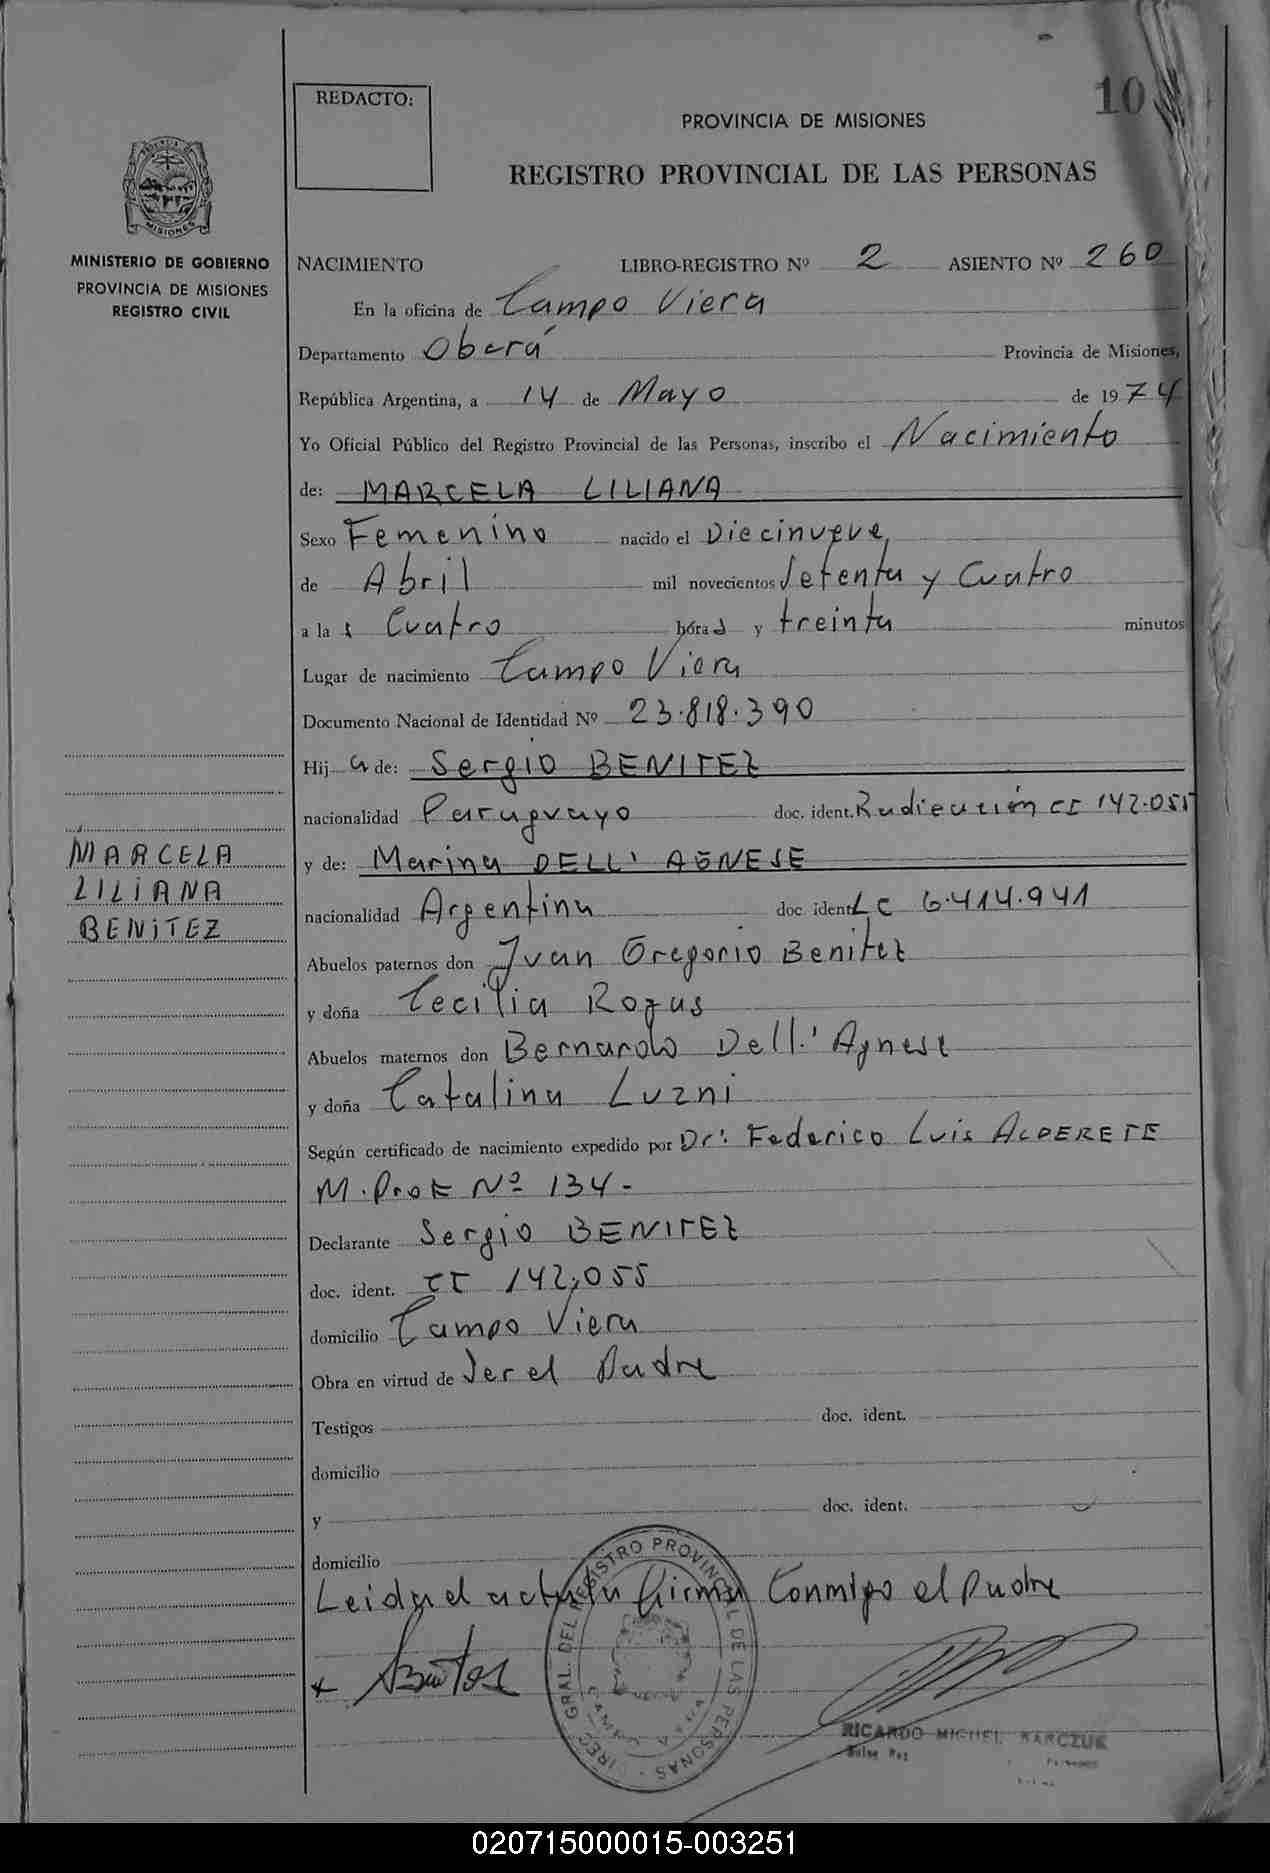 REDACTO:
10
PROVINCIA DE MISIONES
REGISTRO PROVINCIAL DE LAS PERSONAS
MISIONES
MINISTERIO DE GOBIERNO
PROVINCIA DE MISIONES
REGISTRO CIVIL
NACIMIENTO LIBRO-REGISTRO Nº 2 ASIENTO Nº 260
En la oficina de Campo Viera
Departamento Oberá Provincia de Misiones,
República Argentina, a 14 de Mayo de 1974
Yo Oficial Público del Registro Provincial de las Personas, inscribo el Nacimiento
de: MARCELA LILIANA
Sexo Femenino nacido el Diecinueve
de Abril mil novecientos Setenta y Cuatro
a la s Cuatro hóra s y treinta minutos
Lugar de nacimiento Campo Viera
Documento Nacional de Identidad Nº 23.818.390
Hij a de: Sergio BENITEZ
nacionalidad Paraguayo doc. ident. Radicación CI 142.055
MARCELA
LILIANA
BENITEZ
y de: Marina DELL' AGNESE
nacionalidad Argentina doc ident LC 6.414.941
Abuelos paternos don Juan Gregorio Benitez
y doña Cecilia Rozas
Abuelos maternos don Bernardo Dell.' Agnese
y doña Catalina Luzni
Según certificado de nacimiento expedido por Dr: Federico Luis ALDERETE
M. Prof Nº 134-
Declarante Sergio BENITEZ
doc. ident. CI 142,055
domicilio Campo Viera
Obra en virtud de Ser el Padre
Testigos doc. ident.
domicilio
y doc. ident.
domicilio
Leida el acta la firma Conmigo el Padre
DIREC. GRAL. DEL REGISTRO PROVINCIAL DE LAS PERSONAS
RICARDO MIGUEL
020715000015-003251